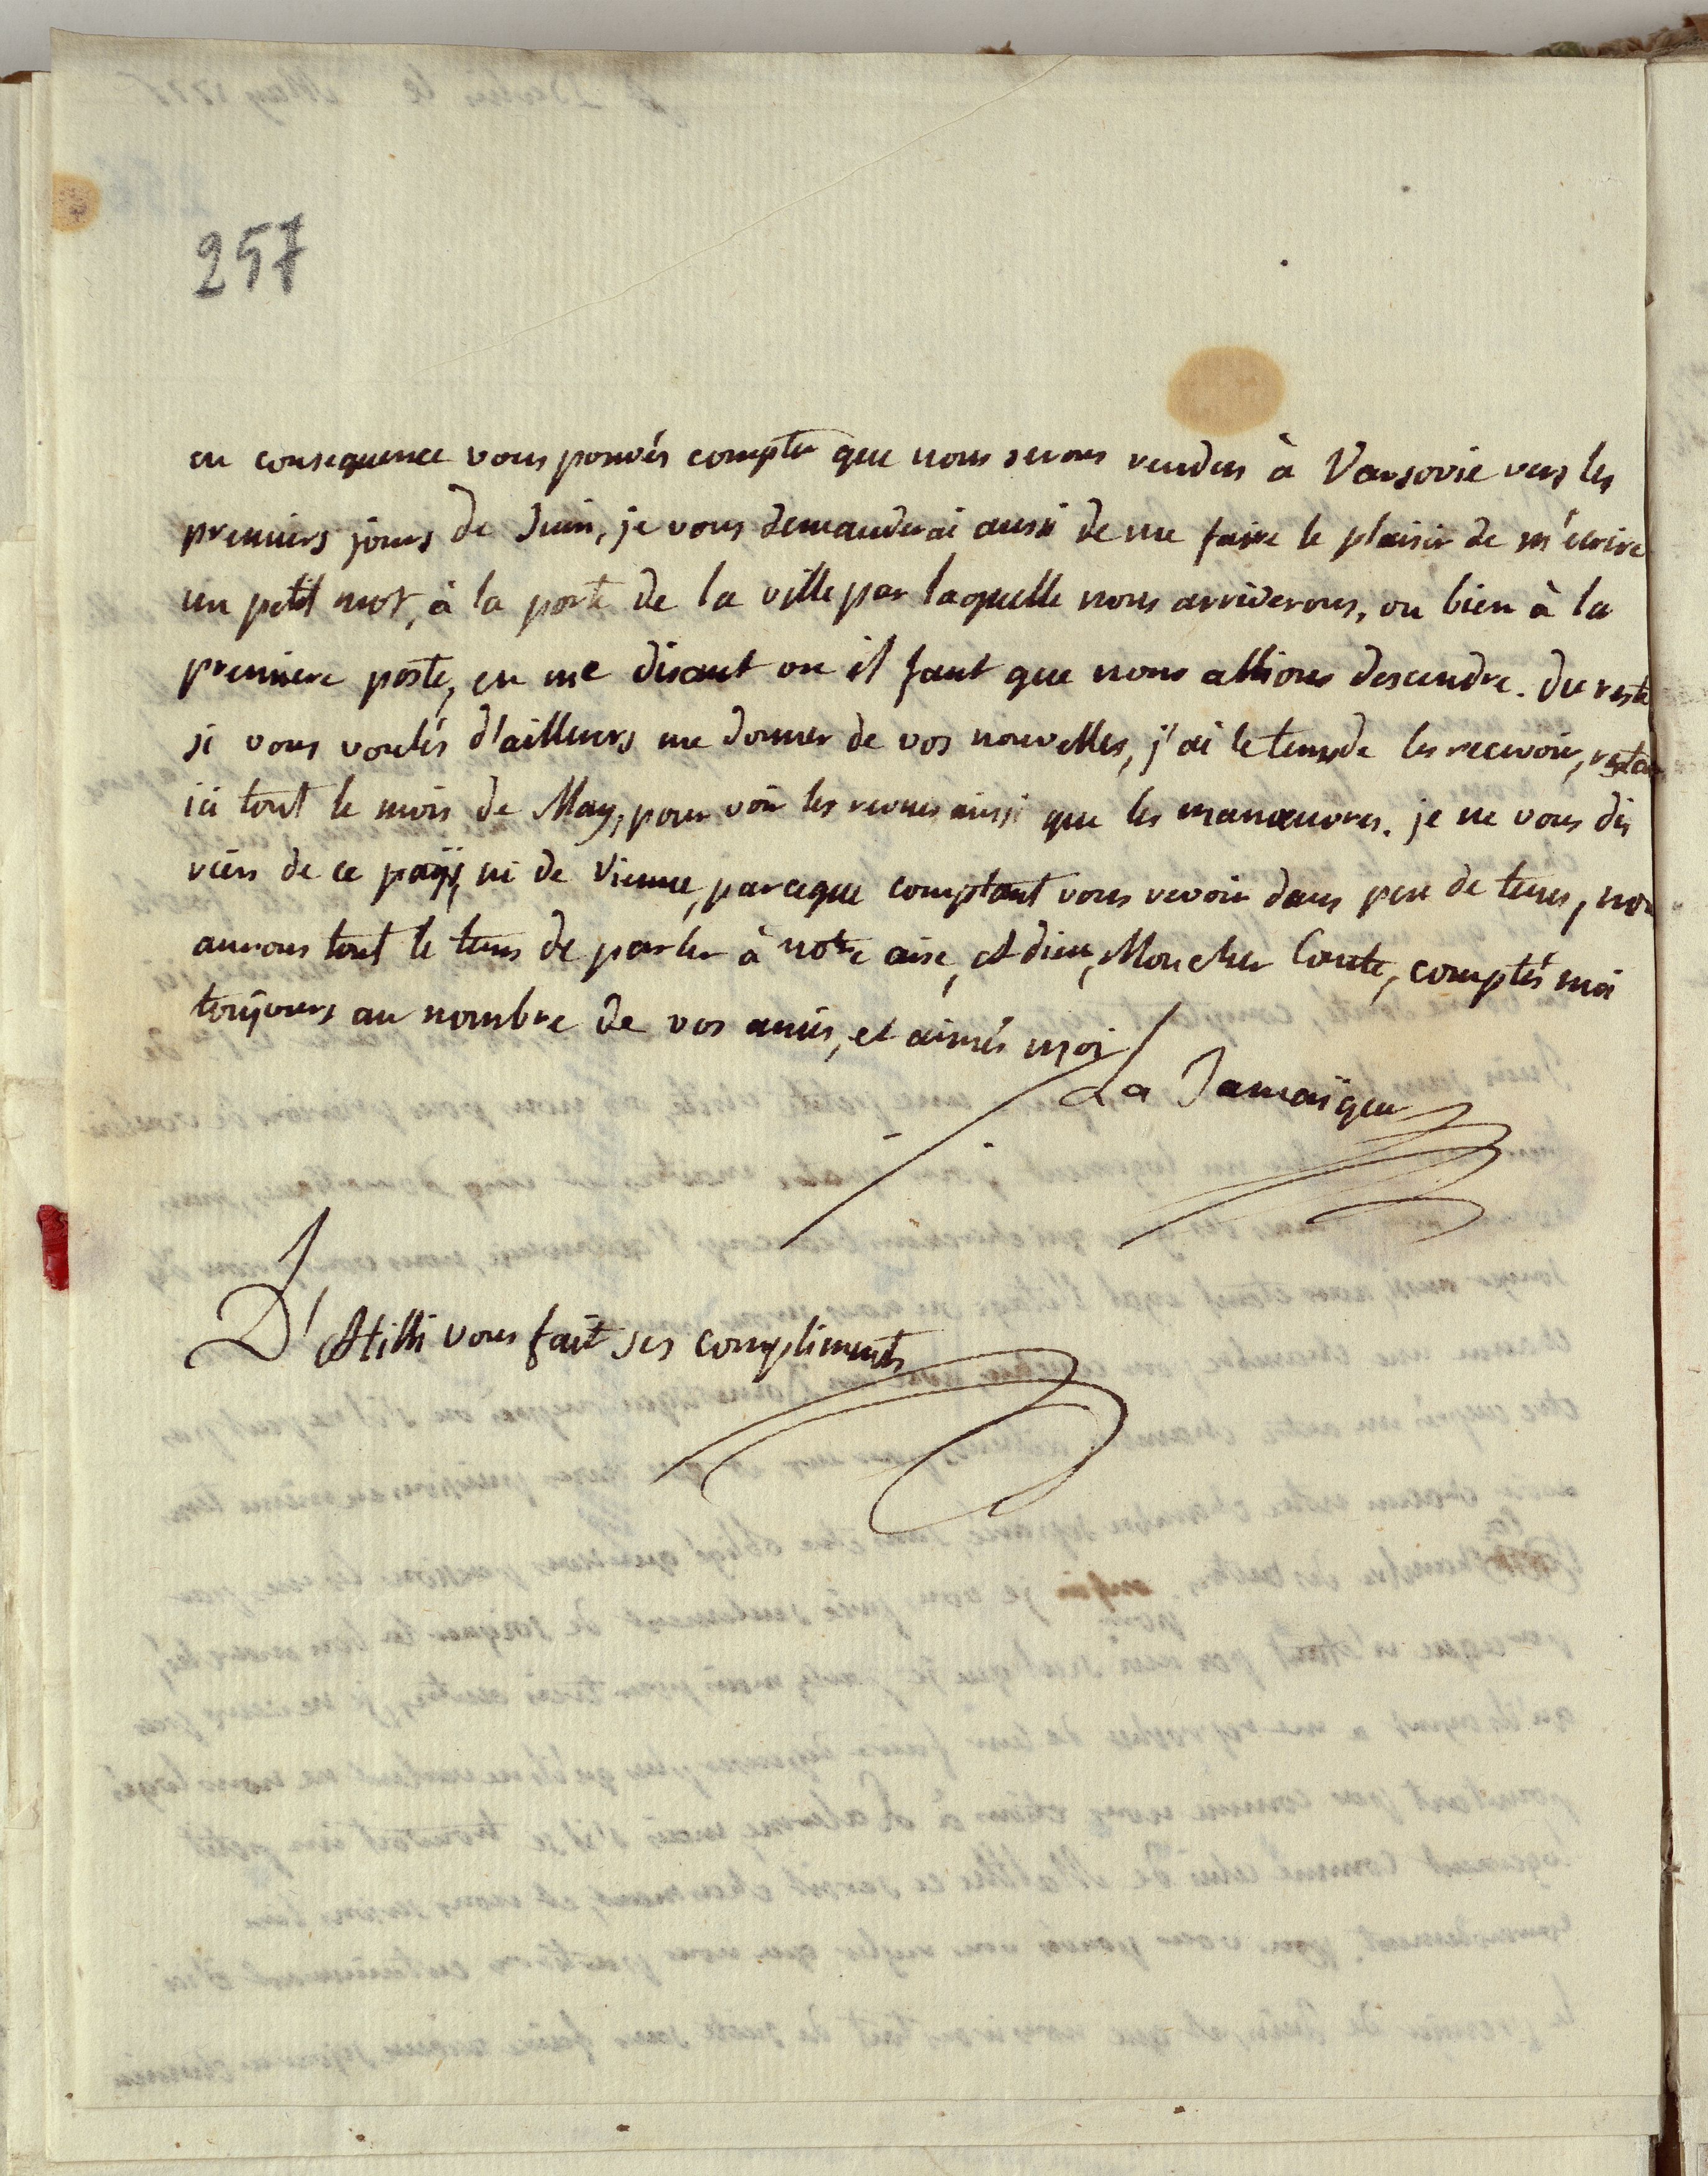 257
en consequence vous pouvés compter que nous serons rendus à Varsovie vers les
premiers jours de Juin, je vous demanderai aussi de me faire le plaisir de m'écrire
un petit mot, à la porte de la ville par laquelle nous arriverons, ou bien à la
premiere poste, en me disant ou il faut que nous allions descendre. du reste
si vous voulés d'ailleurs me donner de vos nouvelles, j'ai le tems de les recevoir, restant
ici tout le mois de May, pour voir les revues ainsi que les manœuvres. je ne vous dis
rien de ce paÿs, ni de Vienne, parceque comptant vous revoir dans peu de tems, nous
aurons tout le tems de parler à notre aise, Adieu, Mon cher Comte, comptés moi
toujours au nombre de vos amis, et aimés moi
La Jamaïque
D'Attilli vous fait ses compliments